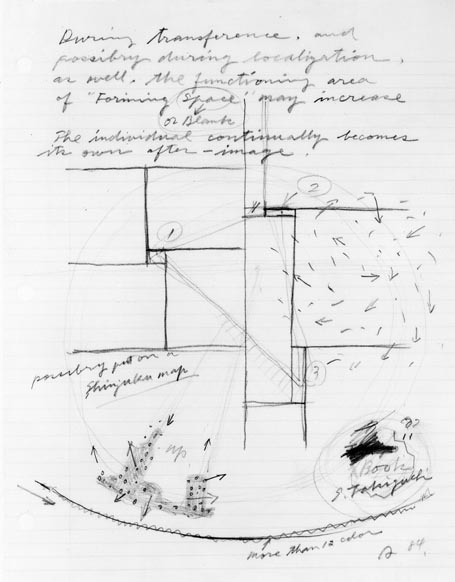 During transference, and
possibry during localization,
as well. the functioning area
of "Forming Space" may increase
or Blank
The individual continually becomes
its own after-image.
1
2
possibry put on a
Shinjuku map
3
up
Book
S. Takiguchi
more than 12 color
A 84.